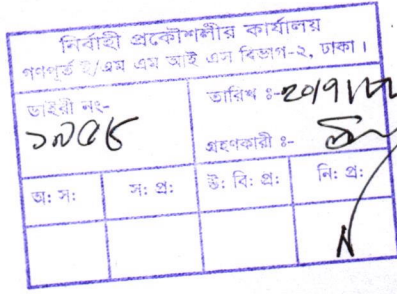 নির্বাহী প্রকৌশলীর কার্যালয়
গণপূর্ত ই/এম এম আই এস বিভাগ-২, ঢাকা।
ডাইরী নং-
তারিখ ঃ-
গ্রহণকারী ঃ-
অ: স:
স: প্র:
উ: বি: প্র:
নি: প্র: